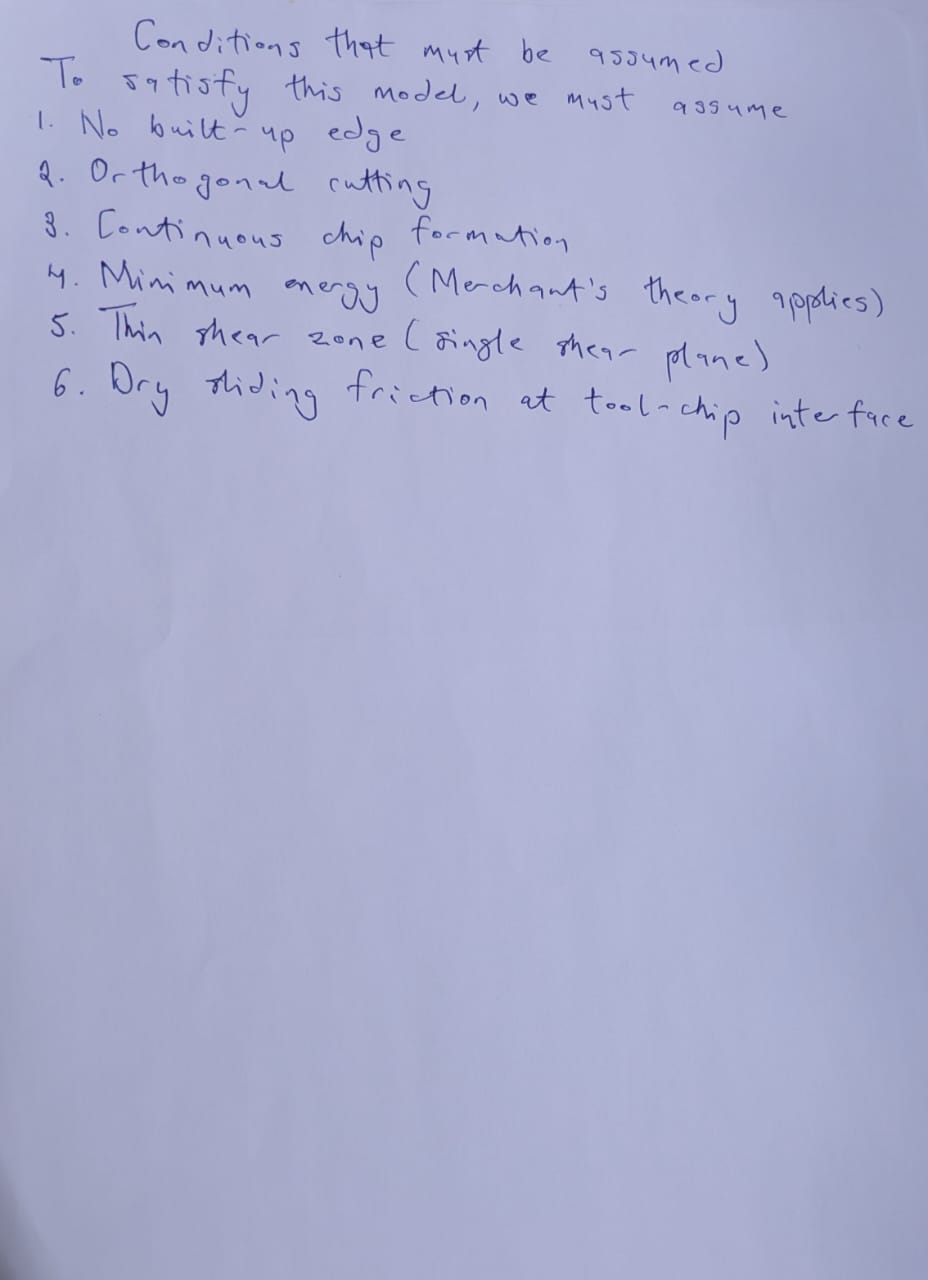 Conditions that must be assumed
To satisfy this model, we must assume
1. No built-up edge
2. Orthogonal cutting
3. Continuous chip formation
4. Minimum energy (Merchant's theory applies)
5. Thin shear zone (single shear plane)
6. Dry sliding friction at tool-chip interface